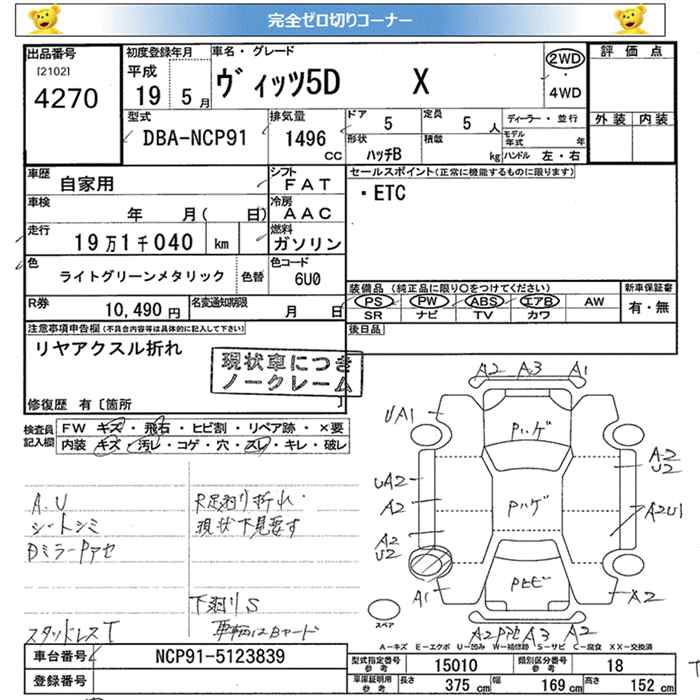 完全ゼロ切りコーナー
出品番号
[2102]
4270
初度登録年月
平成
19 5月
車名・グレード
ヴィッツ5D X
2WD
・
4WD
評価点
外装 内装
型式
DBA-NCP91
排気量
1496
CC
ドア
5
定員
5 人
ディーラー・並行
形状
ハッチB
積載
kg
モデル年式 年
ハンドル 左・右
車歴
自家用
シフト
FAT
車検
年 月( 日)
冷房
AAC
走行
19万1千040 km
燃料
ガソリン
色
ライトグリーンメタリック
色替
色コード
6U0
R券
10,490 円
名変通知期限
月 日
セールスポイント(正常に機能するものに限ります)
・ETC
装備品 (純正品に限り○をつけてください)
PS PW ABS エアB AW
SR ナビ TV カワ
新車保証書
有・無
後日品
注意事項申告欄(不具合内容等は具体的に記入して下さい)
リヤアクスル折れ
現状車につき
ノークレーム
修復歴 有〔箇所 〕
検査員記入欄
FW キズ・飛石・ヒビ割・リペア跡・×要
内装 キズ・汚レ・コゲ・穴・スレ・キレ・破レ
A.U
シートシミ
DミラーPアセ
スタッドレスT
R足廻り折れ.
現状下見要す
下廻りS
A2 A3 A1
UA1
Pハゲ
UA2
A2
A2
U2
Pハゲ
A2
U2
A2U1
A1
PヒビX2
スペア
A2 PヒA3 A2
A-キズ E-エクボ U-凹み W-補修跡 S-サビ C-腐食 XX-交換済
車台番号
NCP91-5123839
登録番号
型式指定番号
参考
15010
類別区分番号
参考
18
車庫証明用
参考
長さ
375 cm
幅
169 cm
高さ
152 cm